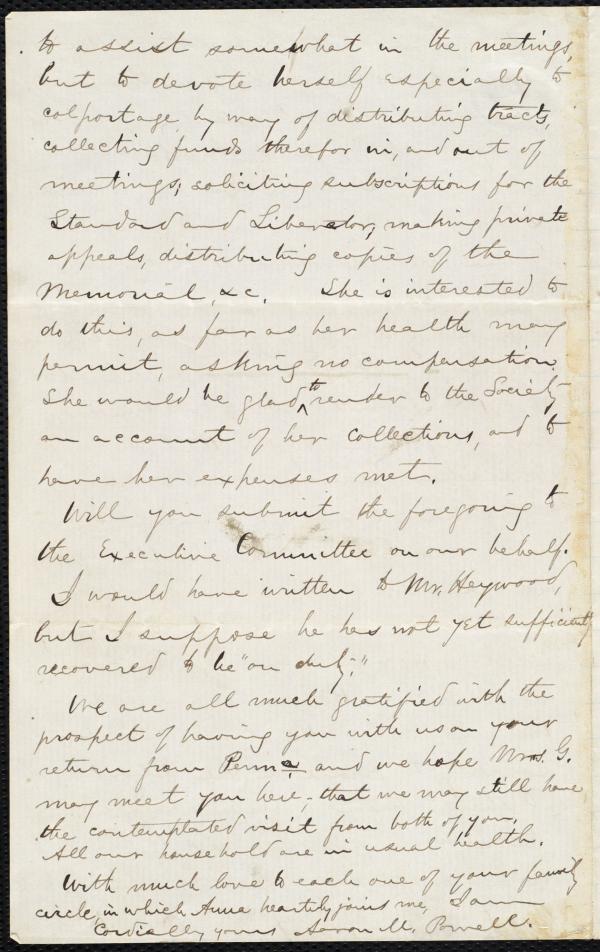 to assist somewhat in the meetings,
but to devote herself especially to
colportage by way of distributing tracts,
collecting funds therefor in, and out of
meetings; soliciting subscriptions for the
Standard and Liberator, making private
appeals, distributing copies of the
Memorial, &c. She is interested to
do this, as far as her health may
permit, asking no compensation.
She would be glad to render to the Society
an account of her collections, and to
have her expenses met.
Will you submit the foregoing to
the Executive Committee on our behalf.
I would have written to Mr. Heywood,
but I suppose he has not yet sufficiently
recovered to be "on duty."
We are all much gratified with the
prospect of having you with us on your
return from Penna. and we hope Mrs. G.
may meet you here, that we may still have
the contemplated visit from both of you.
All our household are in usual health.
With much love to each one of your family
circle, in which Anna heartily joins me, I am
Cordially yours Aaron M. Powell.